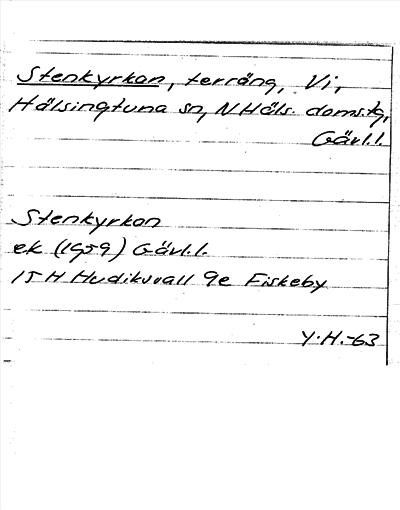 Stenkyrkan, terräng, Vi,
Hälsingtuna sn, N Häls. doms.tg,
Gävl.l.
Stenkyrkan
ek (1959) Gävl.l.
15H Hudiksvall 9e Fiskeby
Y.H.-63